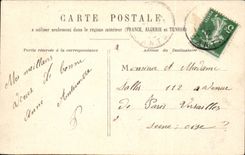 CARTE POSTALE
à utiliser seulement dans le régime intérieur (FRANCE, ALGÉRIE et TUNISIE)
Partie réservée à la correspondance
Adresse du Destinataire
Mes meilleurs
de bonne
Année
Monsieur et Madame
112 avenue
de Paris Versailles
Seine